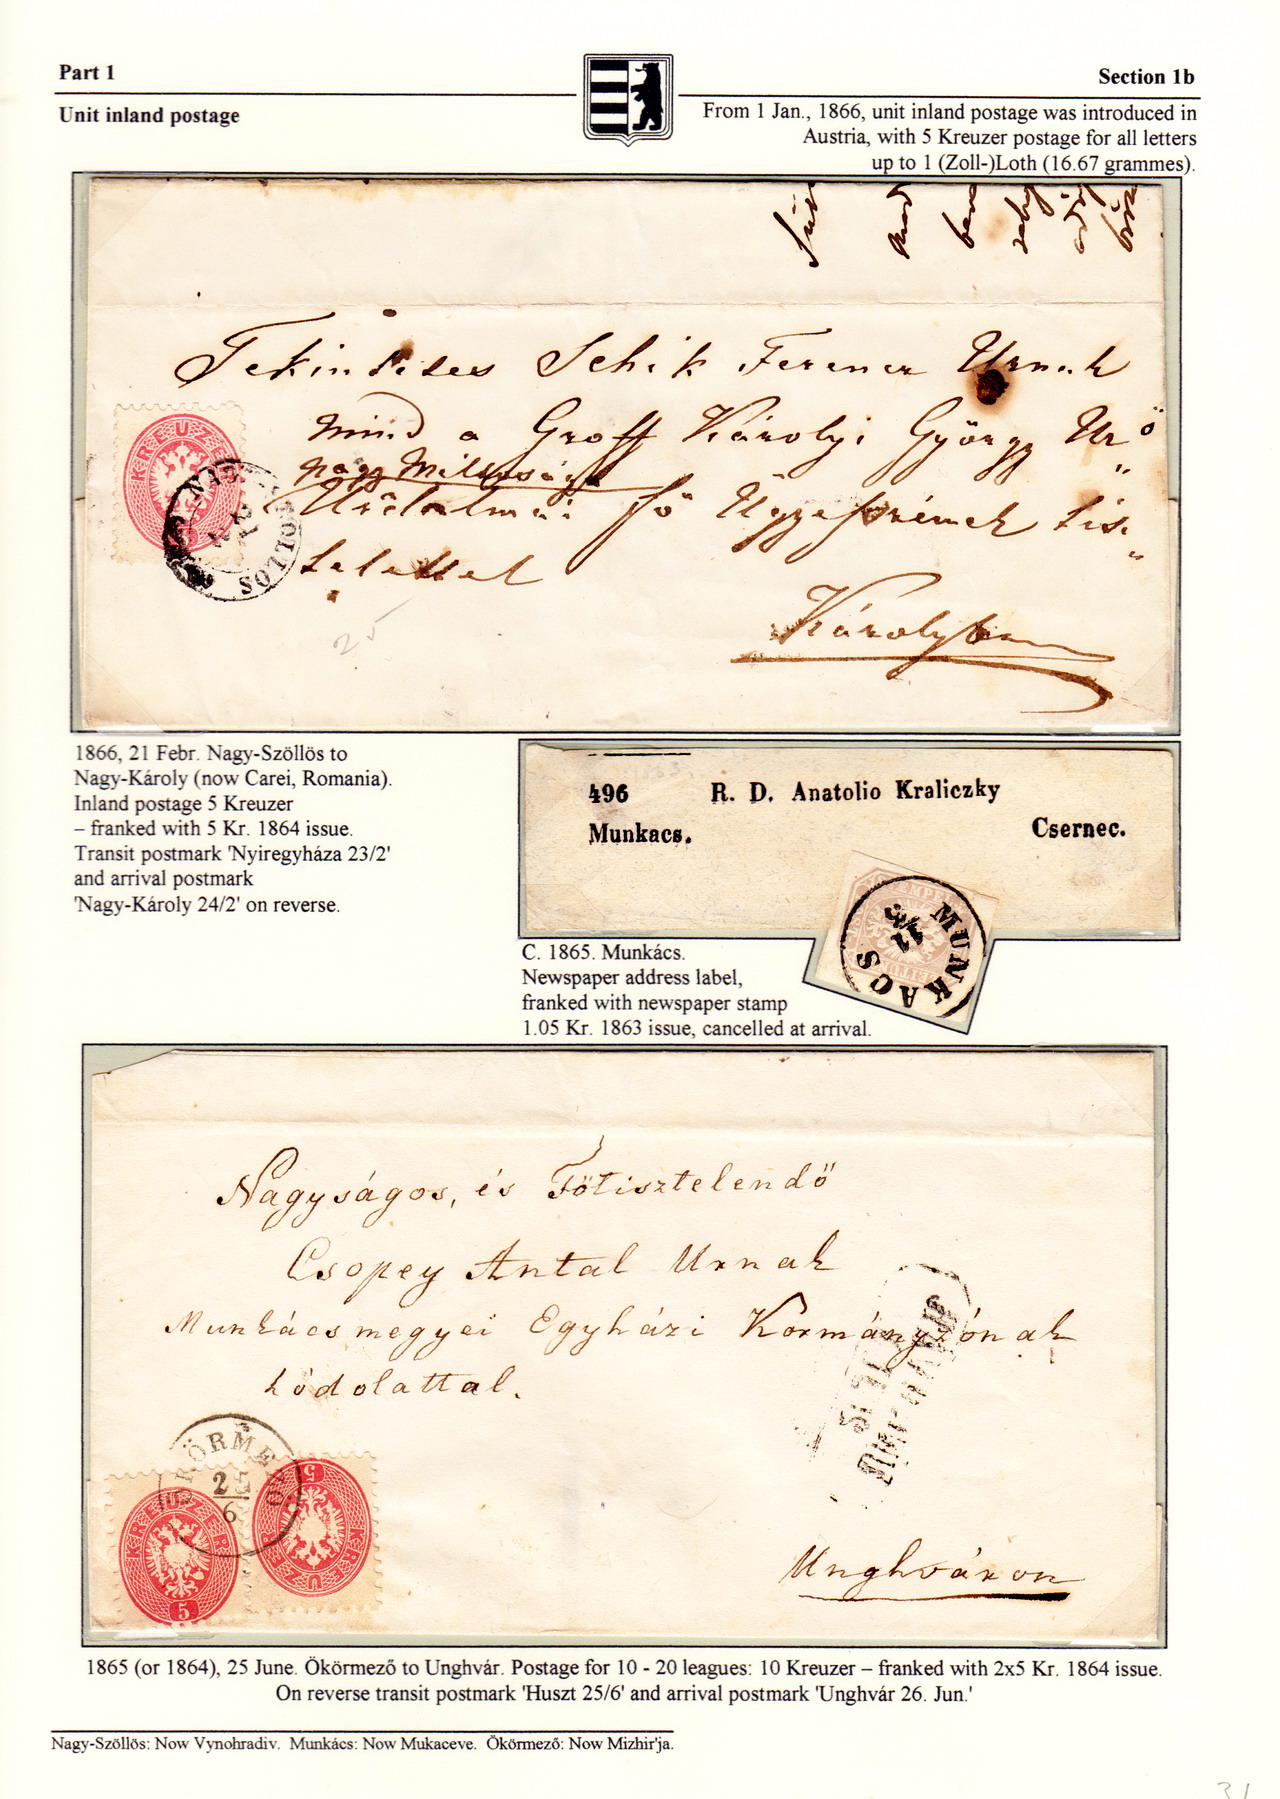 Part 1
Section 1b
Unit inland postage
From 1 Jan., 1866, unit inland postage was introduced in
Austria, with 5 Kreuzer postage for all letters
up to 1 (Zoll-)Loth (16.67 grammes).
Tekintetes Schik Ferencz Urnak
mind a Groff Károlyi György Ur ö
nagy Méltósága
Uradalmai fő Ügyészének tisz
telettel
Károlyban
25
KREUZER
NAGY SZÖLLÖS
1866, 21 Febr. Nagy-Szöllös to
Nagy-Károly (now Carei, Romania).
Inland postage 5 Kreuzer
– franked with 5 Kr. 1864 issue.
Transit postmark 'Nyiregyháza 23/2'
and arrival postmark
'Nagy-Károly 24/2' on reverse.
496 R. D. Anatolio Kraliczky
Munkacs. Csernec.
MUNKACS
11/3
C. 1865. Munkács.
Newspaper address label,
franked with newspaper stamp
1.05 Kr. 1863 issue, cancelled at arrival.
Nagyságos, és Főtisztelendő
Csopey Antal Urnak
Munkácsmegyei Egyházi Kormányzónak
hódolattal.
Unghváron
ÖKÖRMEZO
25
6
KREUZER
5
KREUZER
5
1865 (or 1864), 25 June. Ökörmező to Unghvár. Postage for 10 - 20 leagues: 10 Kreuzer – franked with 2x5 Kr. 1864 issue.
On reverse transit postmark 'Huszt 25/6' and arrival postmark 'Unghvár 26. Jun.'
Nagy-Szöllös: Now Vynohradiv. Munkács: Now Mukaceve. Ökörmező: Now Mizhir'ja.
31